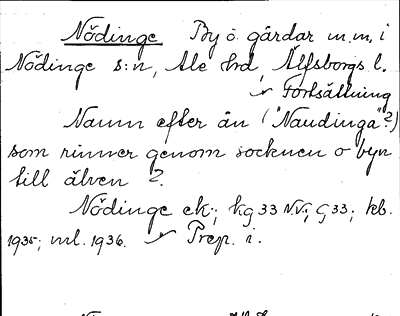 Nödinge By o. gårdar m.m. i
Nödinge s:n, Ale hrd, Älfsborgs l.
Fortsättning
Namn efter ån ("Naudinga"?)
som rinner genom socknen o byn
till älven ?.
Nödinge ek.; kg 33 NV; G 33; kb.
1935; ml. 1936. Prep. i.